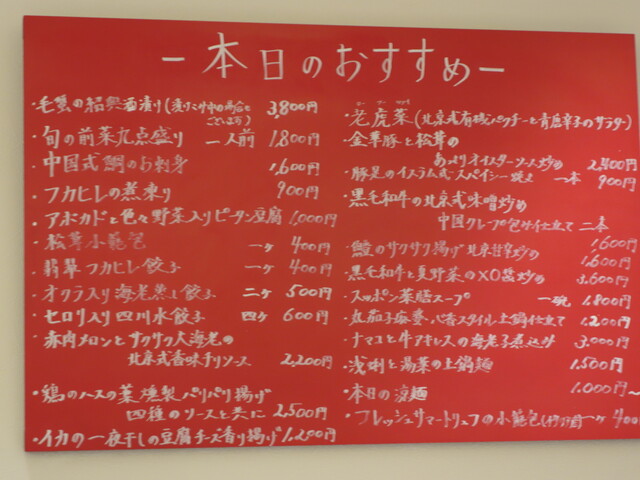 －本日のおすすめ－
・毛蟹の紹興酒漬り(漬りミサ中の場合もございます) 3,800円
・旬の前菜九点盛り 一人前 1,800円
・中国式鯛のお刺身 1,600円
・フカヒレの煮凍り 900円
・アボカドと色々野菜入りピータン豆腐 1,000円
・松茸小籠包 一ヶ 400円
・翡翠フカヒレ餃子 一ヶ 400円
・オクラ入り海老蒸し餃子 二ヶ 500円
・セロリ入り四川水餃子 四ヶ 600円
・赤肉メロンとサクサク大海老の
北京式香味チリソース 2,200円
・鶏のハースの葉燻製パリパリ揚げ
四種のソースと共に 2,500円
・イカの一夜干しの豆腐チーズ香り揚げ 1,200円
・老虎菜(北京式有機パクチーと青唐辛子のサラダ)
・金華豚と松茸の
あっさりオイスターソース炒め 2,400円
・豚足のイスラム式スパイシー焼き 一本 900円
・黒毛和牛の北京式味噌炒め
中国クレープ包み仕立て 二本 1,600円
・鱧のサクサク揚げ北京甘辛炒め 1,600円
・黒毛和牛と夏野菜のXO醤炒め 3,600円
・スッポン薬膳スープ 一碗 1,800円
・丸茄子麻婆 スタイル土鍋仕立て 1,200円
・ナマコと牛アキレスの海老子煮込み 3,000円
・浅蜊と湯葉の土鍋麺 1,500円
・本日の涼麺 1,000円～
・フレッシュサマートリュフの小籠包 一ヶ 400